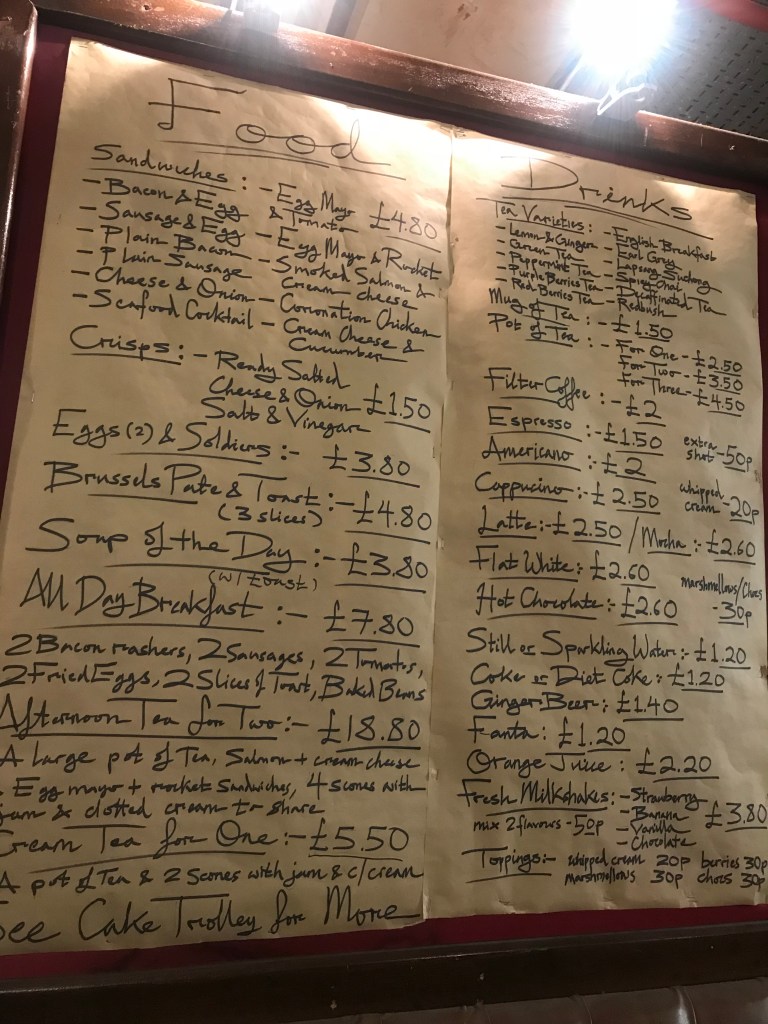 Food
Sandwiches : - Egg Mayo
- Bacon & Egg & Tomato £4.80
- Sausage & Egg - Egg Mayo & Rocket
- Plain Bacon - Smoked Salmon &
- Plain Sausage Cream cheese
- Cheese & Onion - Coronation Chicken
- Seafood Cocktail - Cream Cheese &
Cucumber
Crisps : - Ready Salted
Cheese & Onion £1.50
Salt & Vinegar
Eggs (2) & Soldiers :- £3.80
Brussels Pate & Toast :- £4.80
(3 slices)
Soup of the Day :- £3.80
(w/ toast)
All Day Breakfast :- £7.80
2 Bacon rashers, 2 Sausages, 2 Tomatos,
2 Fried Eggs, 2 Slices of Toast, Baked Beans
Afternoon Tea for Two :- £18.80
A large pot of Tea, Salmon + cream cheese
& Egg mayo + rocket sandwiches, 4 scones with
jam & clotted cream to share
Cream Tea for One :- £5.50
A pot of Tea & 2 Scones with jam & c/cream
See Cake Trolley for More
Drinks
Tea Varieties : - English Breakfast
- Lemon & Ginger - Earl Grey
- Green Tea - Lapsang Suchong
- Peppermint Tea - Spicy Chai
- Purple Berries Tea - Decaffinated Tea
- Red Berries Tea - Redbush
Mug of Tea : - £1.50
Pot of Tea : - For One - £2.50
For Two - £3.50
For Three - £4.50
Filter Coffee : - £2
Espresso :- £1.50 extra shot - 50p
Americano :- £2
Cappucino :- £2.50 whipped cream - 20p
Latte :- £2.50 / Mocha :- £2.60
Flat White :- £2.60
Hot Chocolate :- £2.60 marshmellows/Chocs - 30p
Still or Sparkling Water :- £1.20
Coke or Diet Coke : £1.20
Ginger Beer : £1.40
Fanta : £1.20
Orange Juice : £2.20
Fresh Milkshakes : - Strawberry
mix 2 flavours - 50p - Banana £3.80
- Vanilla
- Chocolate
Toppings :- whipped cream 20p berries 30p
marshmellows 30p chocs 30p